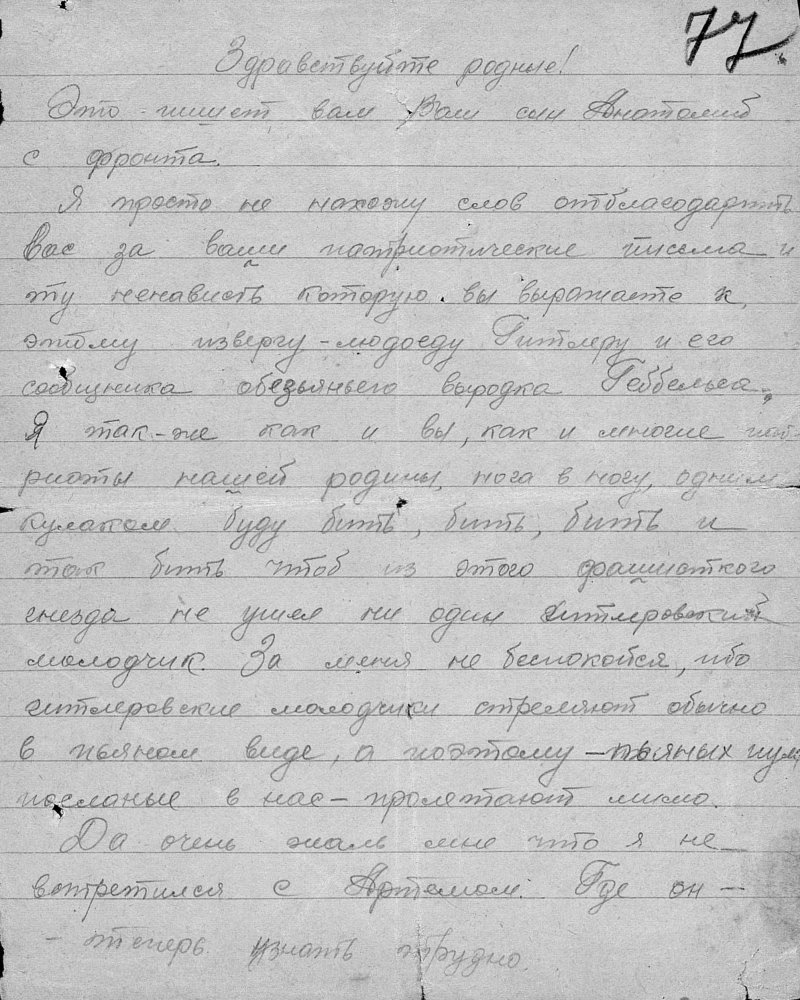 77
Здравствуйте родные!
Это пишет вам Ваш сын Анатолий
с фронта.
Я просто не нахожу слов отблагодарить
Вас за ваши патриотические письма и
ту ненависть которую вы выражаете к
этому извергу-людоеду Гитлеру и его
сообщника обезьяньего выродка Геббельса.
Я так-же как и вы, как и многие пат-
риоты нашей родины, нога в ногу, одним
кулаком буду бить, бить, бить и
так бить чтоб из этого фашисткого
гнезда не ушел ни один гитлеровский
молодчик. За меня не беспокойся, ибо
гитлеровские молодчики стреляют обычно
в пьяном виде, а поэтому – пьяных пули
посланые в нас – пролетают мимо.
Да очень жаль мне что я не
встретился с Артемом. Где он –
– теперь узнать трудно.